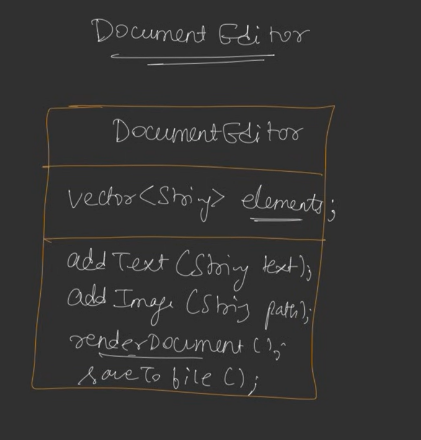 Document Editor
DocumentEditor
vector<String> elements;
addText (String text);
addImage (String path);
renderDocument ();
saveTo file ();